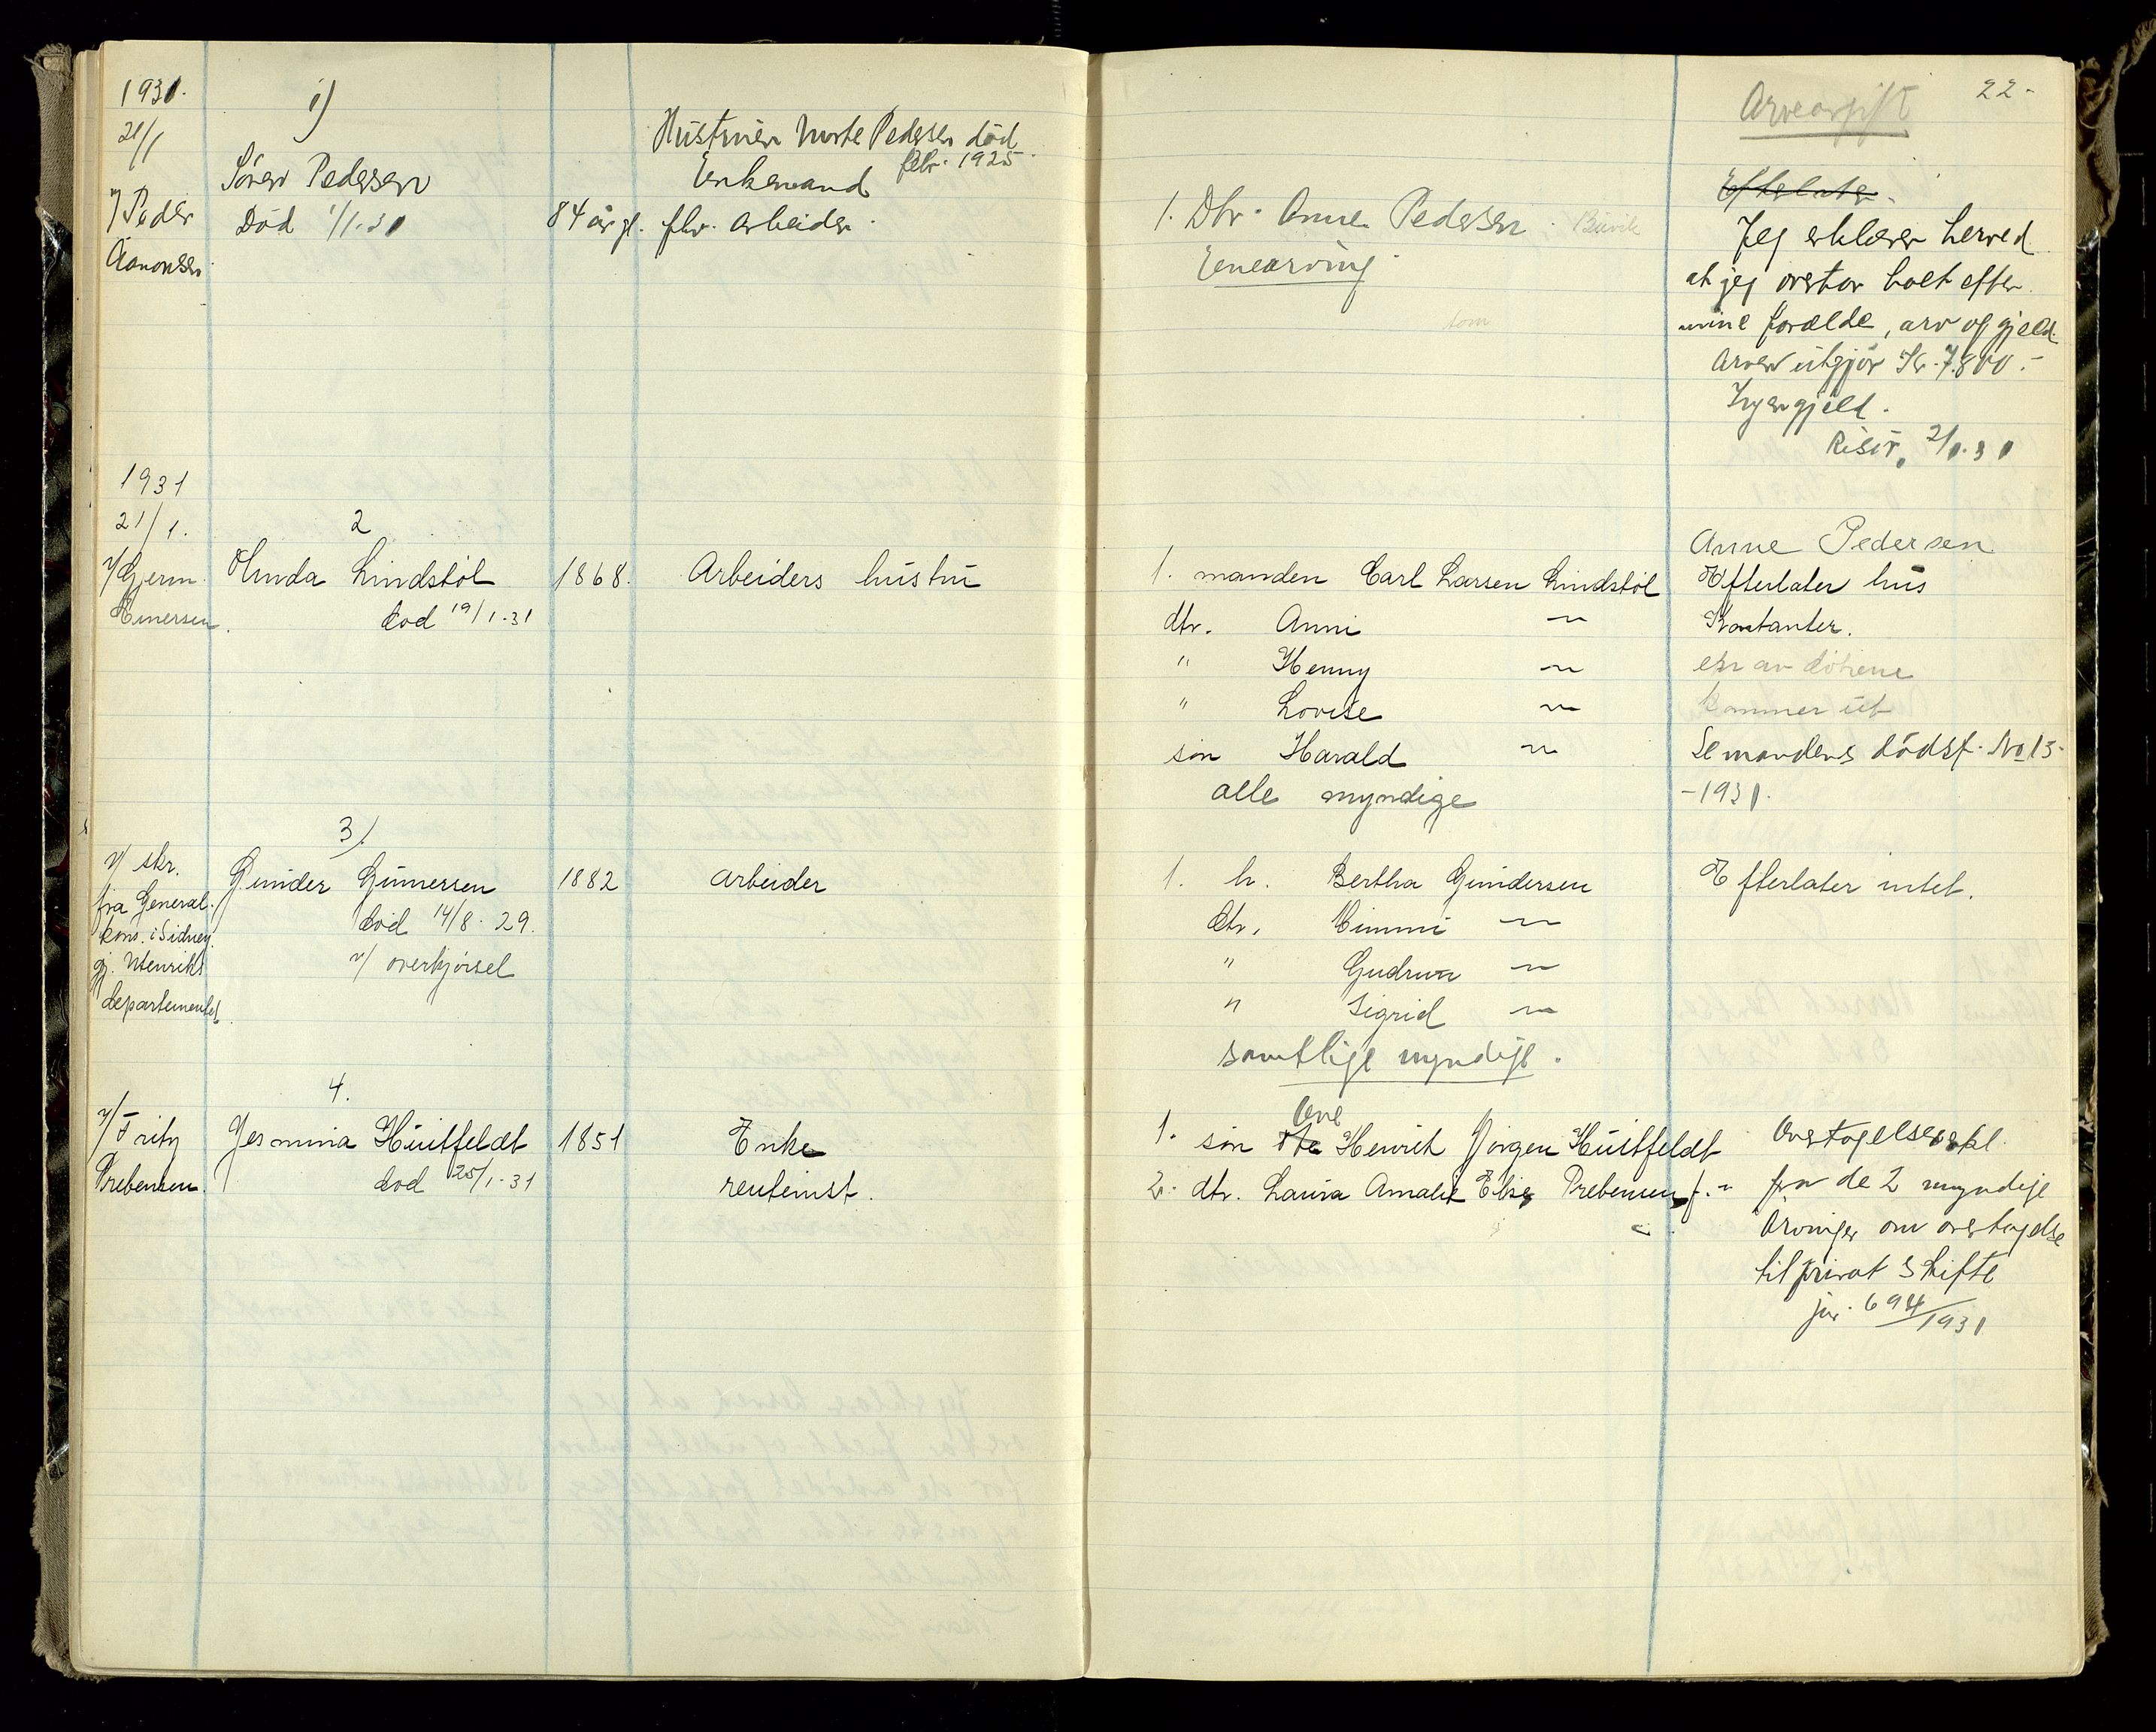 1931.
21/1
v/ Peder
Aanonsen
1)
Søren Pedersen
Død 1/1.31
84 år gl.
Hustruen Marte Pedersen död
febr. 1925.
Enkemand
fhv. arbeider.
22-
Arveavgift
1. Dtr. Anne Pedersen.
Enearving.
tom
Efterlater.
Jeg erklærer herved
at jeg overtar boet efter
mine forælde, arv og gjeld.
Arven utgjør Kr. 7.800.-
Ingen gjeld.
Risør, 2/1.31
Anne Pedersen
1931
21/1.
v/ Gjerm.
Einersen.
2
Olinda Lindstöl
död 19/1.31
1868.
Arbeiders hustru
1. manden Carl Larsen Lindstöl
dtr. Anni ~
" Henny ~
" Lovise ~
sön Harald ~
alle myndige
Efterlater hus
Kontanter.
en av dötrene
kommer ut
Se mandens dödsf. No 13-
-1931.
3/.
v/ skr.
fra General.
kons. i Sidney.
gj. Utenriks
departementet.
Gunder Gunnersen
död 14/8. 29.
v/ overkjörsel
1882
arbeider
1. h. Bertha Gundersen
dtr. Mimmi ~
" Gudrun ~
" Sigrid ~
samtlige myndige.
Efterlater intet.
4.
v/ Fritz
Prebensen.
Jesmina Huitfeldt
död 25/1.31
1851
Enke
renteinst.
Ove
1. sön Henrik Jörgen Huitfeldt
2. dtr. Laura Amalie Elise Prebensen f. "
Overtagelseserkl.
fra de 2 myndige
arvinger om overtagelse
til privat skifte
jnr. 694/1931